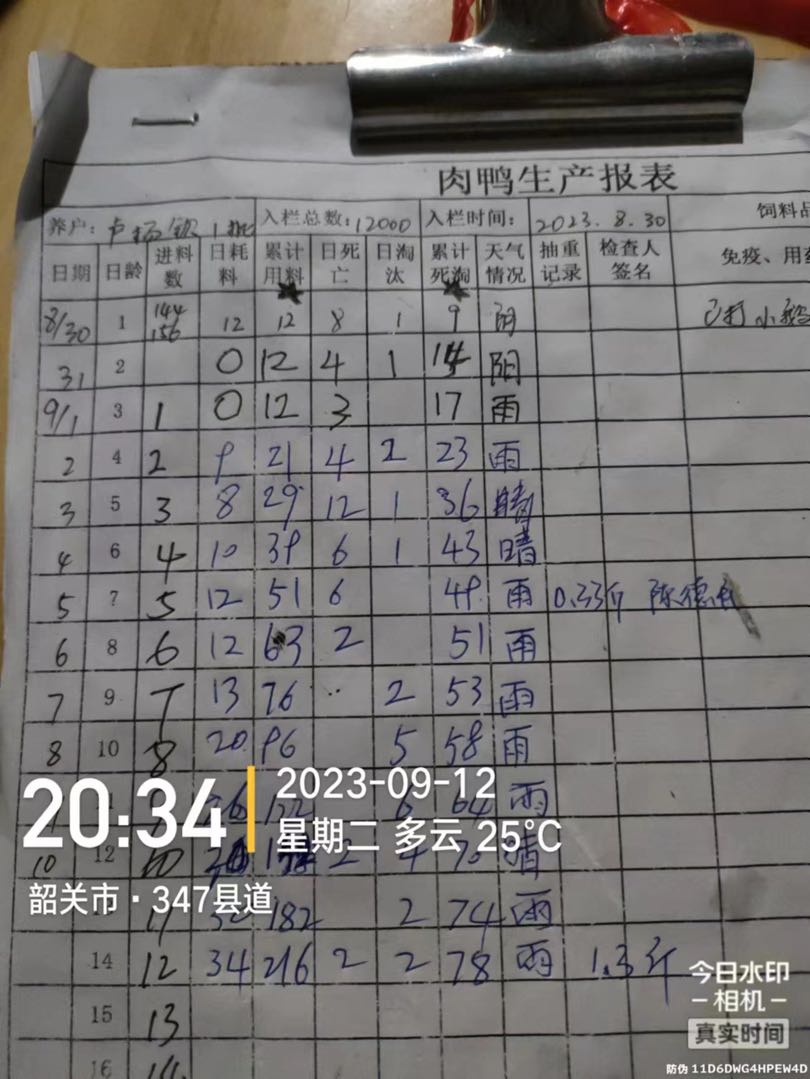 肉鸭生产报表
养户: 卢 1批 入栏总数: 12000 入栏时间: 2023.8.30 饲料品
日期 日龄 进料数 日耗料 累计用料 日死亡 日淘汰 累计死淘 天气情况 抽重记录 检查人签名 免疫、用药
8/30 1 144 156 12 12 8 1 9 阴 已打小鹅
31 2 0 12 4 1 14 阴
9/1 3 1 0 12 3 17 雨
2 4 2 9 21 4 2 23 雨
3 5 3 8 29 12 1 36 晴
4 6 4 10 39 6 1 43 晴
5 7 5 12 51 6 49 雨 0.33斤 陈德
6 8 6 12 63 2 51 雨
7 9 7 13 76 .. 2 53 雨
8 10 8 20 96 5 58 雨
26 122 6 64 雨
10 12 10 2 4 70 晴
11 182 2 74 雨
14 12 34 216 2 2 78 雨 1.3斤
15 13
16 14
20:34
2023-09-12
星期二 多云 25°C
韶关市·347县道
今日水印
-相机-
真实时间
防伪 11D6DWG4HPEW4D